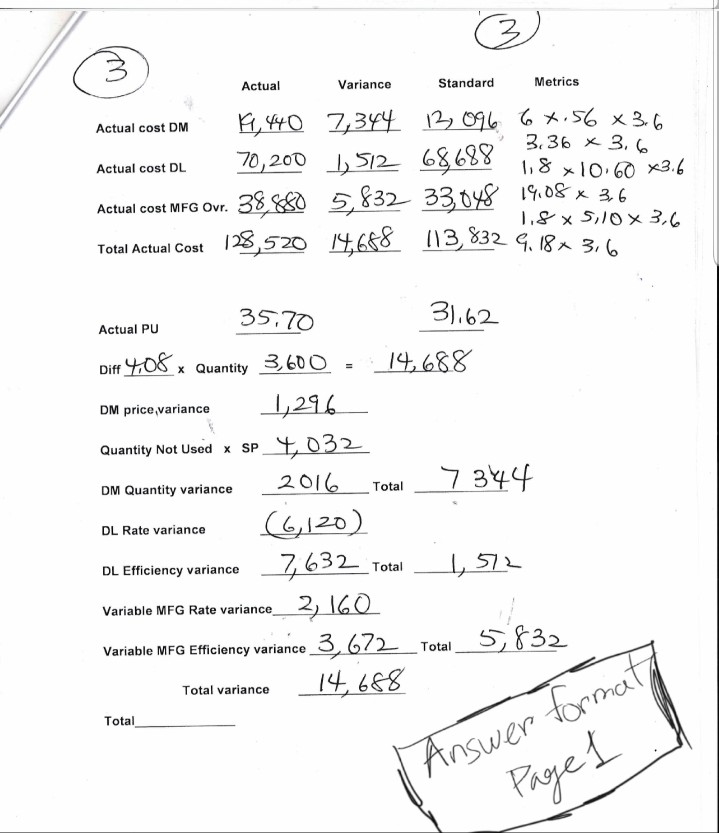 3
3
Actual Variance Standard Metrics
Actual cost DM 19,440 7,344 12,096 6 x .56 x 3.6
3.36 x 3.6
Actual cost DL 70,200 1,512 68,688 1.8 x 10.60 x3.6
19.08 x 3.6
Actual cost MFG Ovr. 38,880 5,832 33,048 1.8 x 5.10 x 3.6
Total Actual Cost 128,520 14,688 113,832 9.18x 3.6
Actual PU 35.70 31.62
Diff 4.08 x Quantity 3,600 = 14,688
DM price,variance 1,296
Quantity Not Used x SP 4,032
DM Quantity variance 2016 Total 7344
DL Rate variance (6,120)
DL Efficiency variance 7,632 Total 1,512
Variable MFG Rate variance 2,160
Variable MFG Efficiency variance 3,672 Total 5,832
Total variance 14,688
Total
Answer format
Page 1